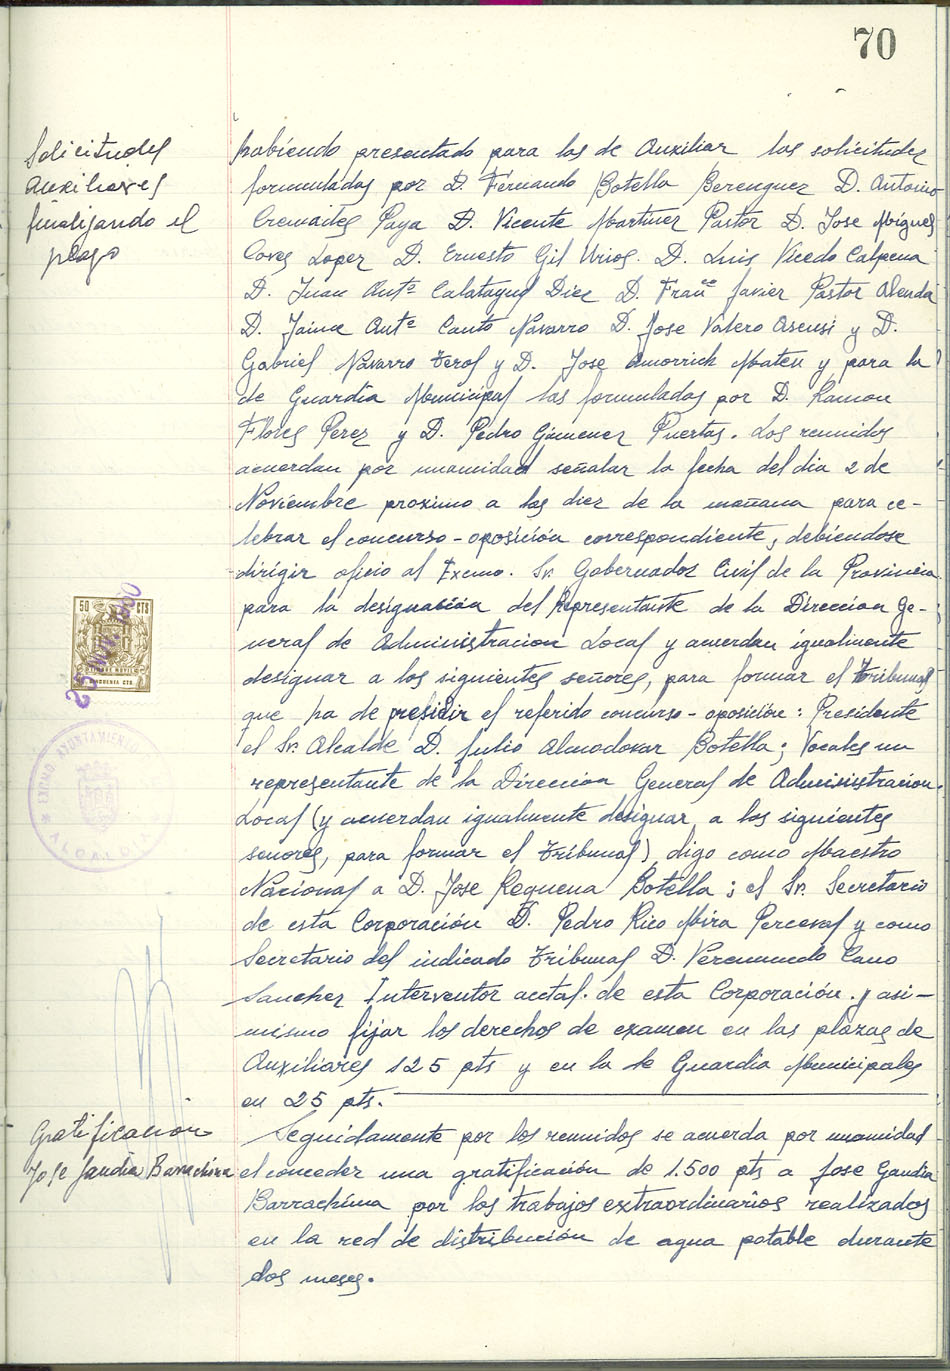 70
Solicitudes
Auxiliares
finalizando el
plazo
habiendo presentado para las de Auxiliar las solicitudes
formuladas por D. Fernando Botella Berenguer D. Antonio
Cremades Paya D. Vicente Martinez Pastor D. Jose Miguel
Caves Lopez D. Ernesto Gil Urios. D. Luis Vicedo Calpena
D. Juan Antº Calatayud Diez D. Franº Javier Pastor Alenda
D. Jaime Antº Canto Navarro D. Jose Valero Asensi y D.
Gabriel Navarro Terol y D. Jose Amorrich Maten y para la
de Guardia Municipal las formuladas por D. Ramon
Flores Perez y D. Pedro Gimenez Puertas. Los reunidos
acuerdan por unamidad señalar la fecha del dia 2 de
Noviembre proximo a las diez de la mañana para ce-
lebrar el concurso-oposición correspondiente, debiendose
dirigir oficio al Excmo. Sr. Gobernador Civil de la Provincia
para la designación del Representante de la Direccion Ge-
neral de Administracion Local y acuerdan igualmente
designar a los siguientes señores, para formar el Tribunal
que ha de presidir el referido concurso-oposición: Presidente
el Sr. Alcalde D. Julio Almodovar Botella; Vocales un
representante de la Direccion General de Administracion
Local (y acuerdan igualmente designar, a los siguientes
señores, para formar el Tribunal), digo como Maestro
Nacional a D. Jose Requena Botella; el Sr. Secretario
de esta Corporación D. Pedro Rico Mira Perceval y como
Secretario del indicado Tribunal D. Veremundo Cano
Sanchez Interventor acctal. de esta Corporación. y asi-
mismo fijar los derechos de examen en las plazas de
Auxiliares 125 pts y en la de Guardia Municipales
en 25 pts.
Gratificación
Jose Gandia Barrachina
Seguidamente por los reunidos se acuerda por unamidad
el conceder una gratificación de 1.500 pts a Jose Gandia
Barrachina por los trabajos extraordinarios realizados
en la red de distribución de agua potable durante
dos meses.
50 CTS
25 NOV. 1960
MOVIL
CINCUENTA CTS
EXCMO. AYUNTAMIENTO
ALCALDIA